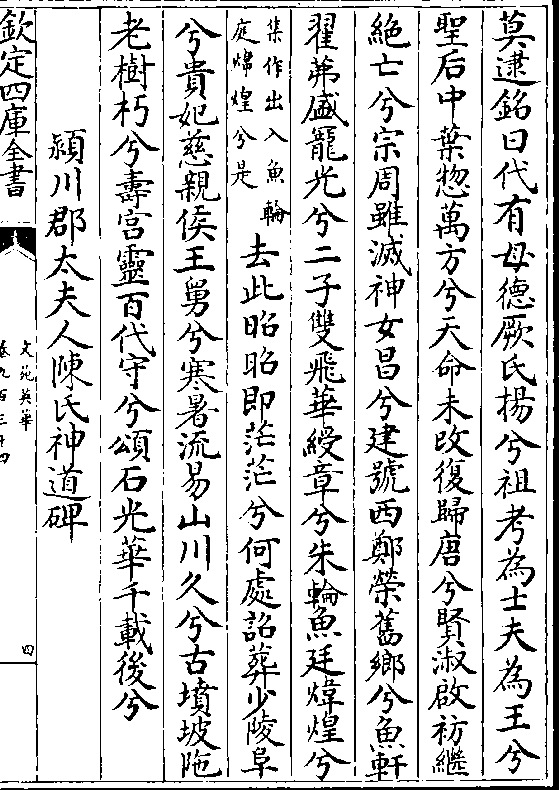 莫逮銘曰代有母德厥氏揚兮祖考為士夫為王兮
聖后中葉惣萬方兮天命未改復歸唐兮賢淑啟祊繼
絕亡兮宗周雖滅神女昌兮建號西鄭榮舊鄉兮魚軒
翟茀盛寵光兮二子雙飛華綬章兮朱輪魚廷煒煌兮
集作出入魚輪
庭煒煌兮是
去此昭昭即茫茫兮何處詔葬少陵阜
兮貴妃慈親侯王舅兮寒暑流易山川久兮古墳坡陁
老樹朽兮壽宮靈百代守兮頌石光華千載後兮
潁川郡太夫人陳氏神道碑
欽定四庫全書
文苑英華
卷九百三十四
四